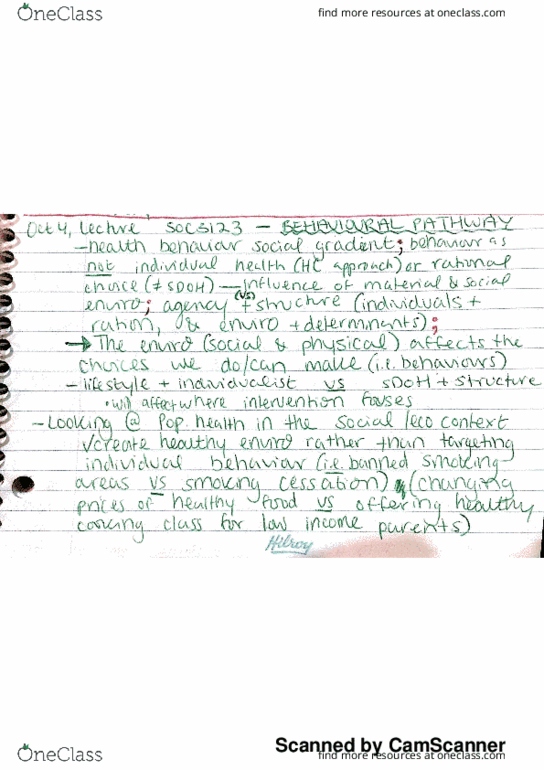 OneClass
find more resources at oneclass.com
Oct 4, Lecture SOC3123 - BEHAVIOURAL PATHWAY
-health behaviour social gradient; behaviour as
not individual health (HC approach) or rational
choice (≠ SDOH) — influence of material & social
enviro; agency (vs) + structure (individuals +
ration, & enviro + determinants);
→ The enviro (social & physical) affects the
choices we do/can make (i.e. behaviours)
- lifestyle + individualist vs SDOH + structure
• will affect where intervention focuses
- Looking @ Pop. health in the social/eco context
√create healthy enviro rather than targeting
individual behaviour (i.e. banned smoking
areas vs smoking cessation) & (changing
prices of healthy food vs offering healthy
cooking class for low income parents)
Hilroy
Scanned by CamScanner
OneClass
find more resources at oneclass.com